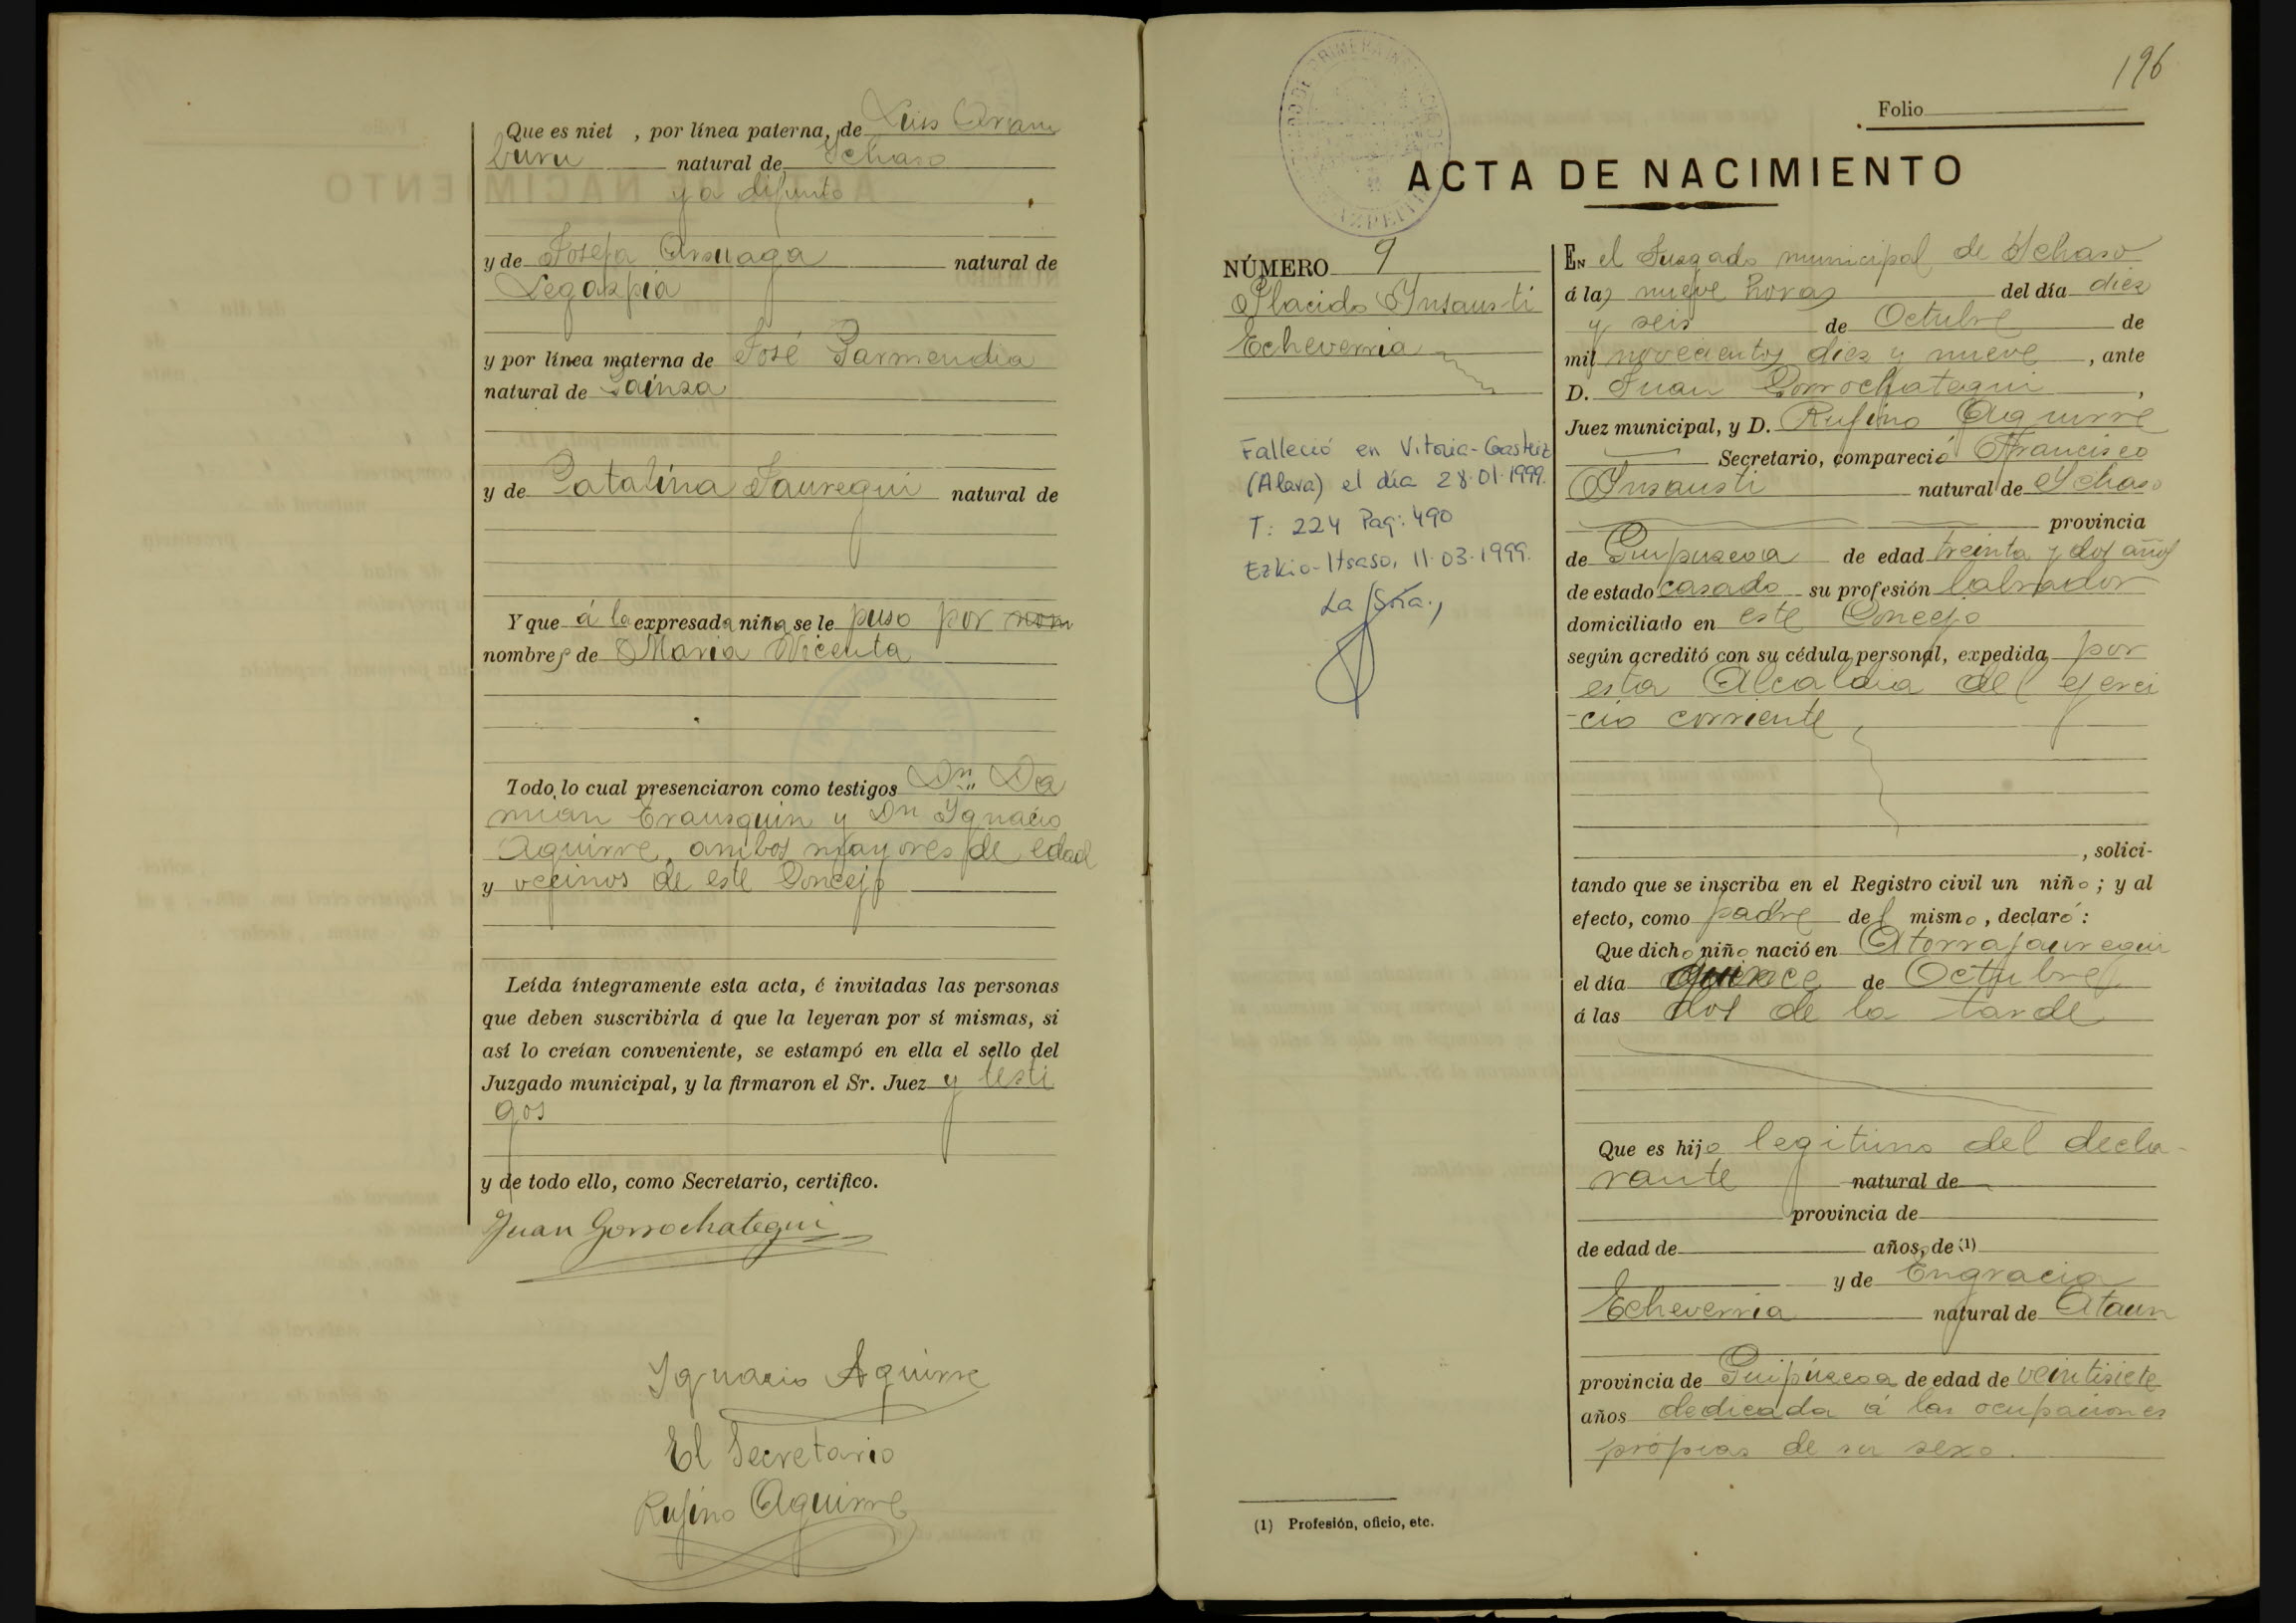 Que es niet , por línea paterna, de Luis Aram
buru natural de Ychaso
ya difunto
y de Josefa Arsuaga natural de
Legazpia
y por línea materna de José Garmendia
natural de Gainza
y de Catalina Jauregui natural de
Y que á la expresada niña se le puso por nom
nombres de Maria Vicenta
Todo lo cual presenciaron como testigos Dn. Da
mian Erausquin y Dn Ygnacio
Aguirre, ambos mayores de edad
y vecinos de este Concejo
Leída íntegramente esta acta, é invitadas las personas
que deben suscribirla á que la leyeran por sí mismas, si
así lo creían conveniente, se estampó en ella el sello del
Juzgado municipal, y la firmaron el Sr. Juez y testi
gos
y de todo ello, como Secretario, certifico.
Juan Gorrochategui
Ygnacio Aguirre
El Secretario
Rufino Aguirre
196
Folio
ACTA DE NACIMIENTO
NÚMERO 9
Placido Ynsausti
Echeverria
Falleció en Vitoria-Gasteiz
(Alava) el día 28·01·1999.
T: 224 Pag: 490
Ezkio-Itsaso, 11·03·1999.
La Sria.,
EN el Juzgado municipal de Ychaso
á las nueve horas del día diez
y seis de Octubre de
mil novecientos diez y nueve, ante
D. Juan Gorrochategui,
Juez municipal, y D. Rufino Aguirre
Secretario, compareció Francisco
Ynsausti natural de Ychaso
provincia
de Guipuzcoa de edad treinta y dos años
de estado casado su profesión labrador
domiciliado en este Concejo
según acreditó con su cédula personal, expedida por
esta Alcaldia del ejerci
-cio corriente
, solici-
tando que se inscriba en el Registro civil un niño; y al
efecto, como padre del mismo, declaró:
Que dicho niño nació en Atorrajauregui
el día quince de Octubre
á las dos de la tarde
Que es hijo legitimo del decla-
rante natural de
provincia de
de edad de años, de (1)
y de Engracia
Echeverria natural de Ataun
provincia de Guipúzcoa de edad de veintisiete
años dedicada á las ocupaciones
propias de su sexo.
(1) Profesión, oficio, etc.